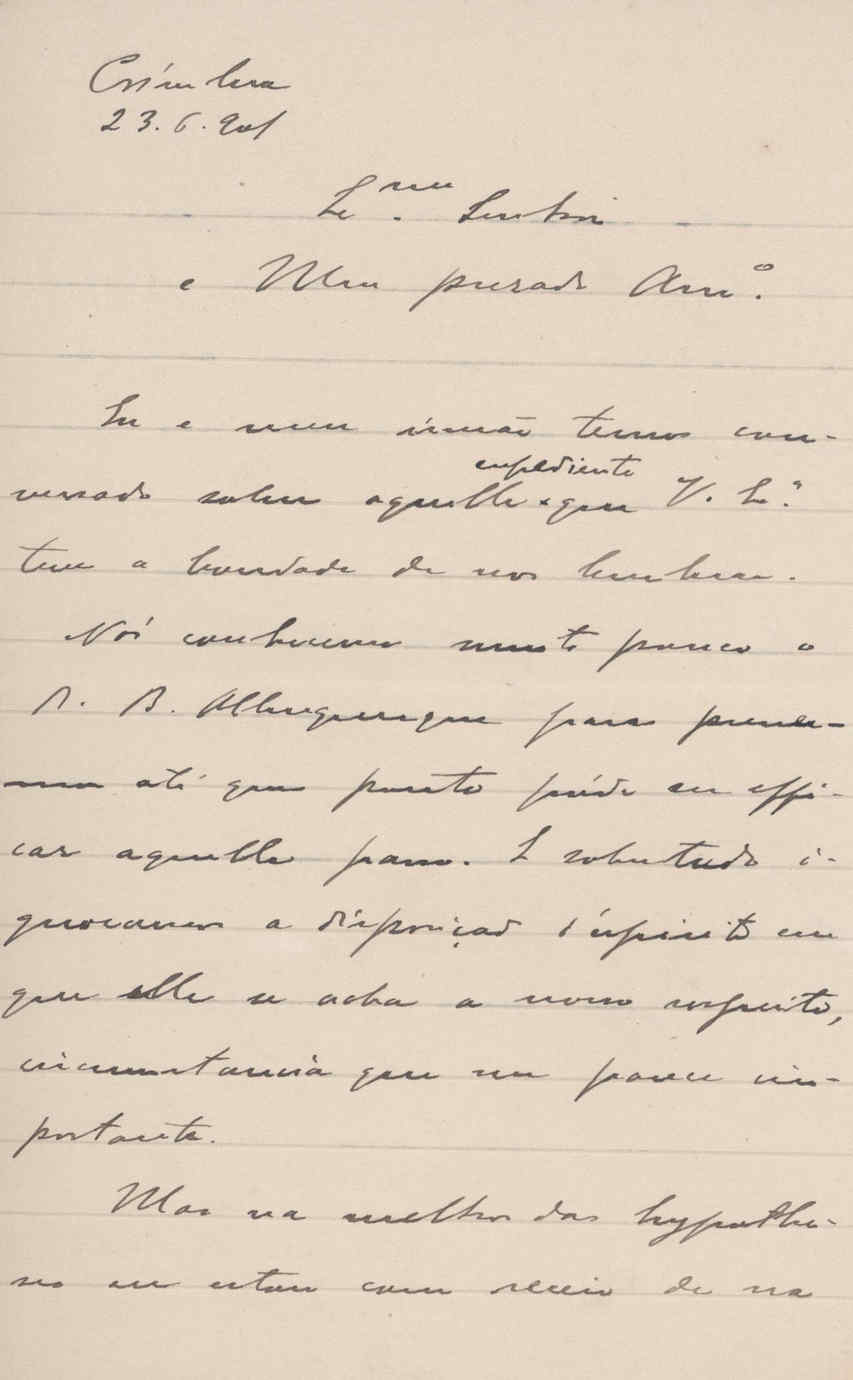 Coimbra
23.6.901
Ex.mo Senhor
e Meu presado Am.o
Eu e meu irmão temos con-
versado sobre aquelle expediente que V. Ex.a
teve a bondade de nos lembrar.
Nós conhecemos muito pouco o
A. B. Albuquerque para prever-
mos até que ponto póde ser effi-
caz aquelle passo. E sobretudo i-
gnoramos a disposição d'espirito em
que elle se acha a nosso respeito,
circumstancia que me parece im-
portante.
Mas na melhor das hypothe-
ses eu estou com receio de na